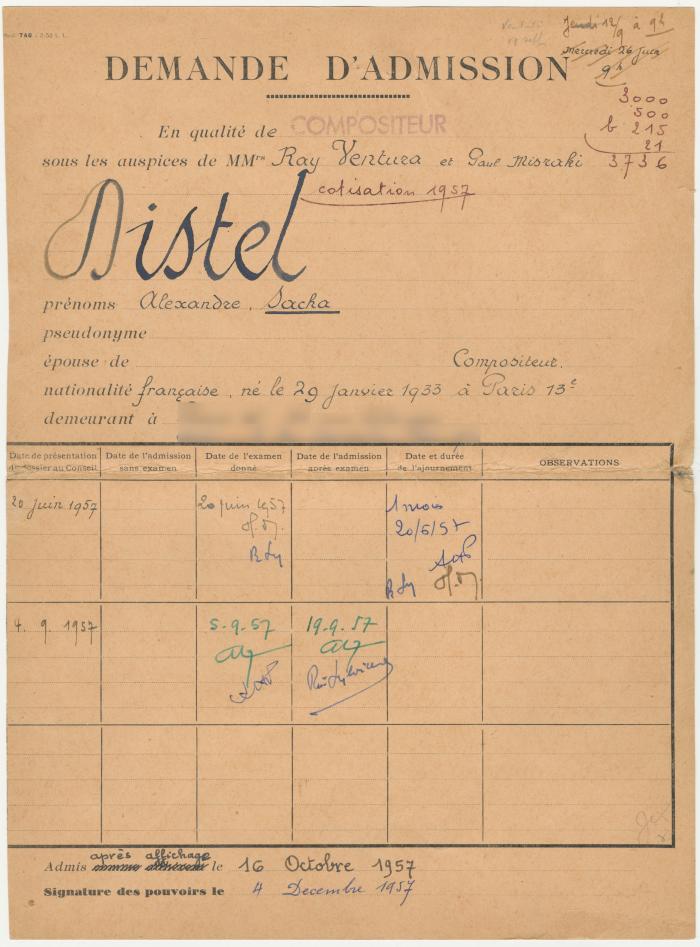 Jeudi 12/9 à 9h
Mercredi 26 Juin
9h
DEMANDE D'ADMISSION
3000
500
b 215
21
3736
En qualité de COMPOSITEUR
sous les auspices de MMrs Ray Ventura et Paul Misraki
cotisation 1957
Distel
prénoms Alexandre, Sacha
pseudonyme
épouse de
Compositeur.
nationalité française, né le 29 Janvier 1933 à Paris 13e
demeurant à
Date de présentation du dossier au Conseil
Date de l'admission sans examen
Date de l'examen donné
Date de l'admission après examen
Date et durée de l'ajournement
OBSERVATIONS
20 juin 1957
20 juin 1957
1 mois
20/6/57
4. 9. 1957
5-9-57
19.9.57
après affichage
Admis le 16 Octobre 1957
Signature des pouvoirs le 4 Decembre 1957